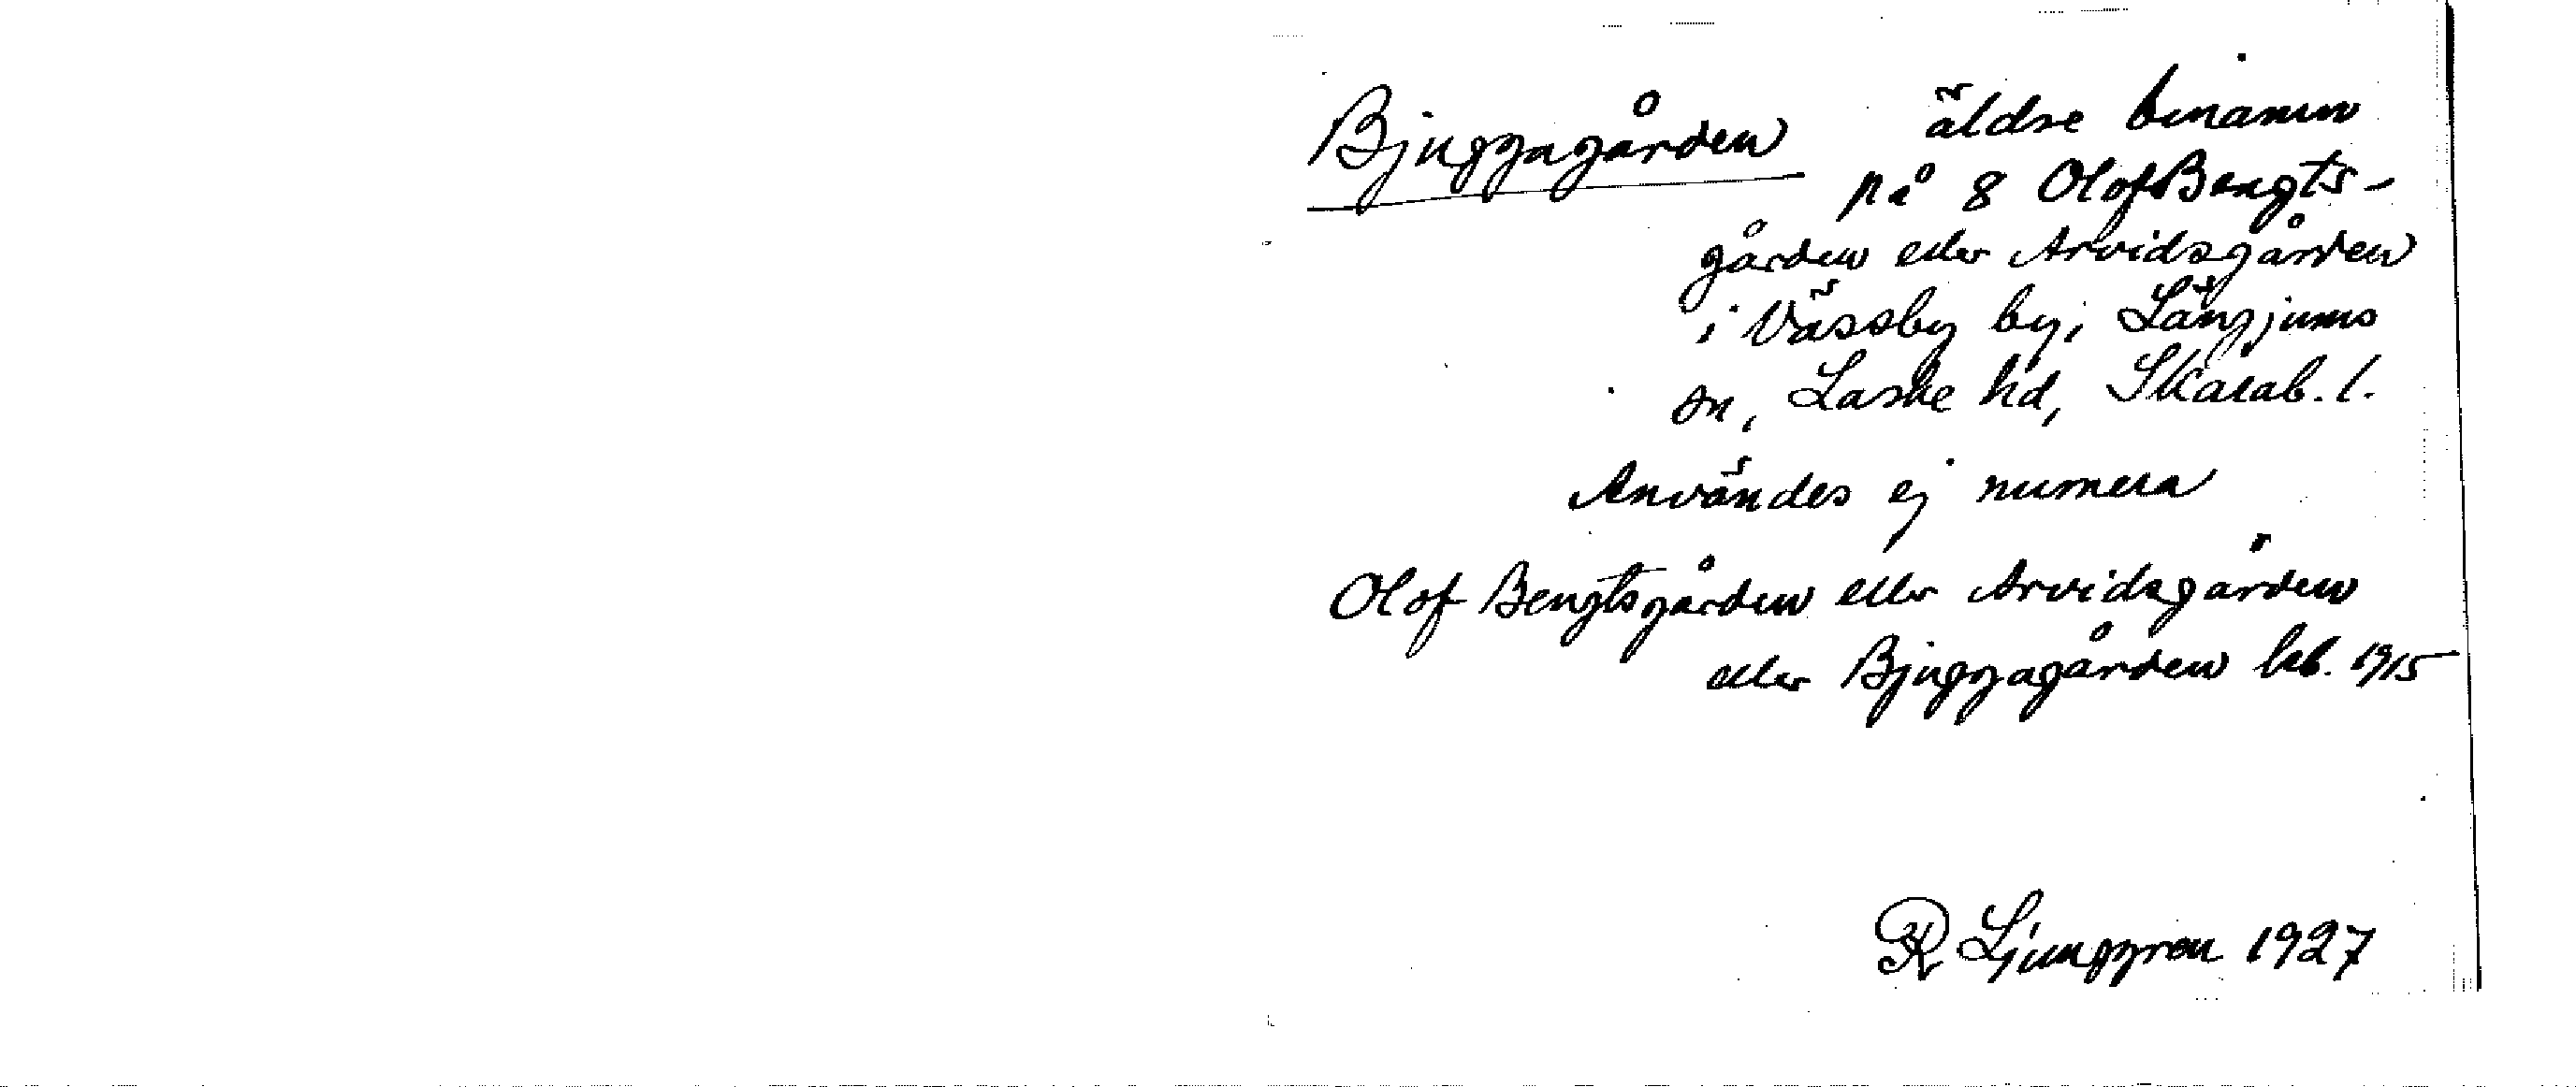 Bjuggagården äldre binamn
på 8 Olof Bengts-
gården eller Arvidsgården
i Vässby by i Längjums
sn, Laske hd, Skarab. l.
Användes ej numera
Olof Bengtsgården eller Arvidsgården
eller Bjuggagården kb. 1915
R Ljunggren 1927